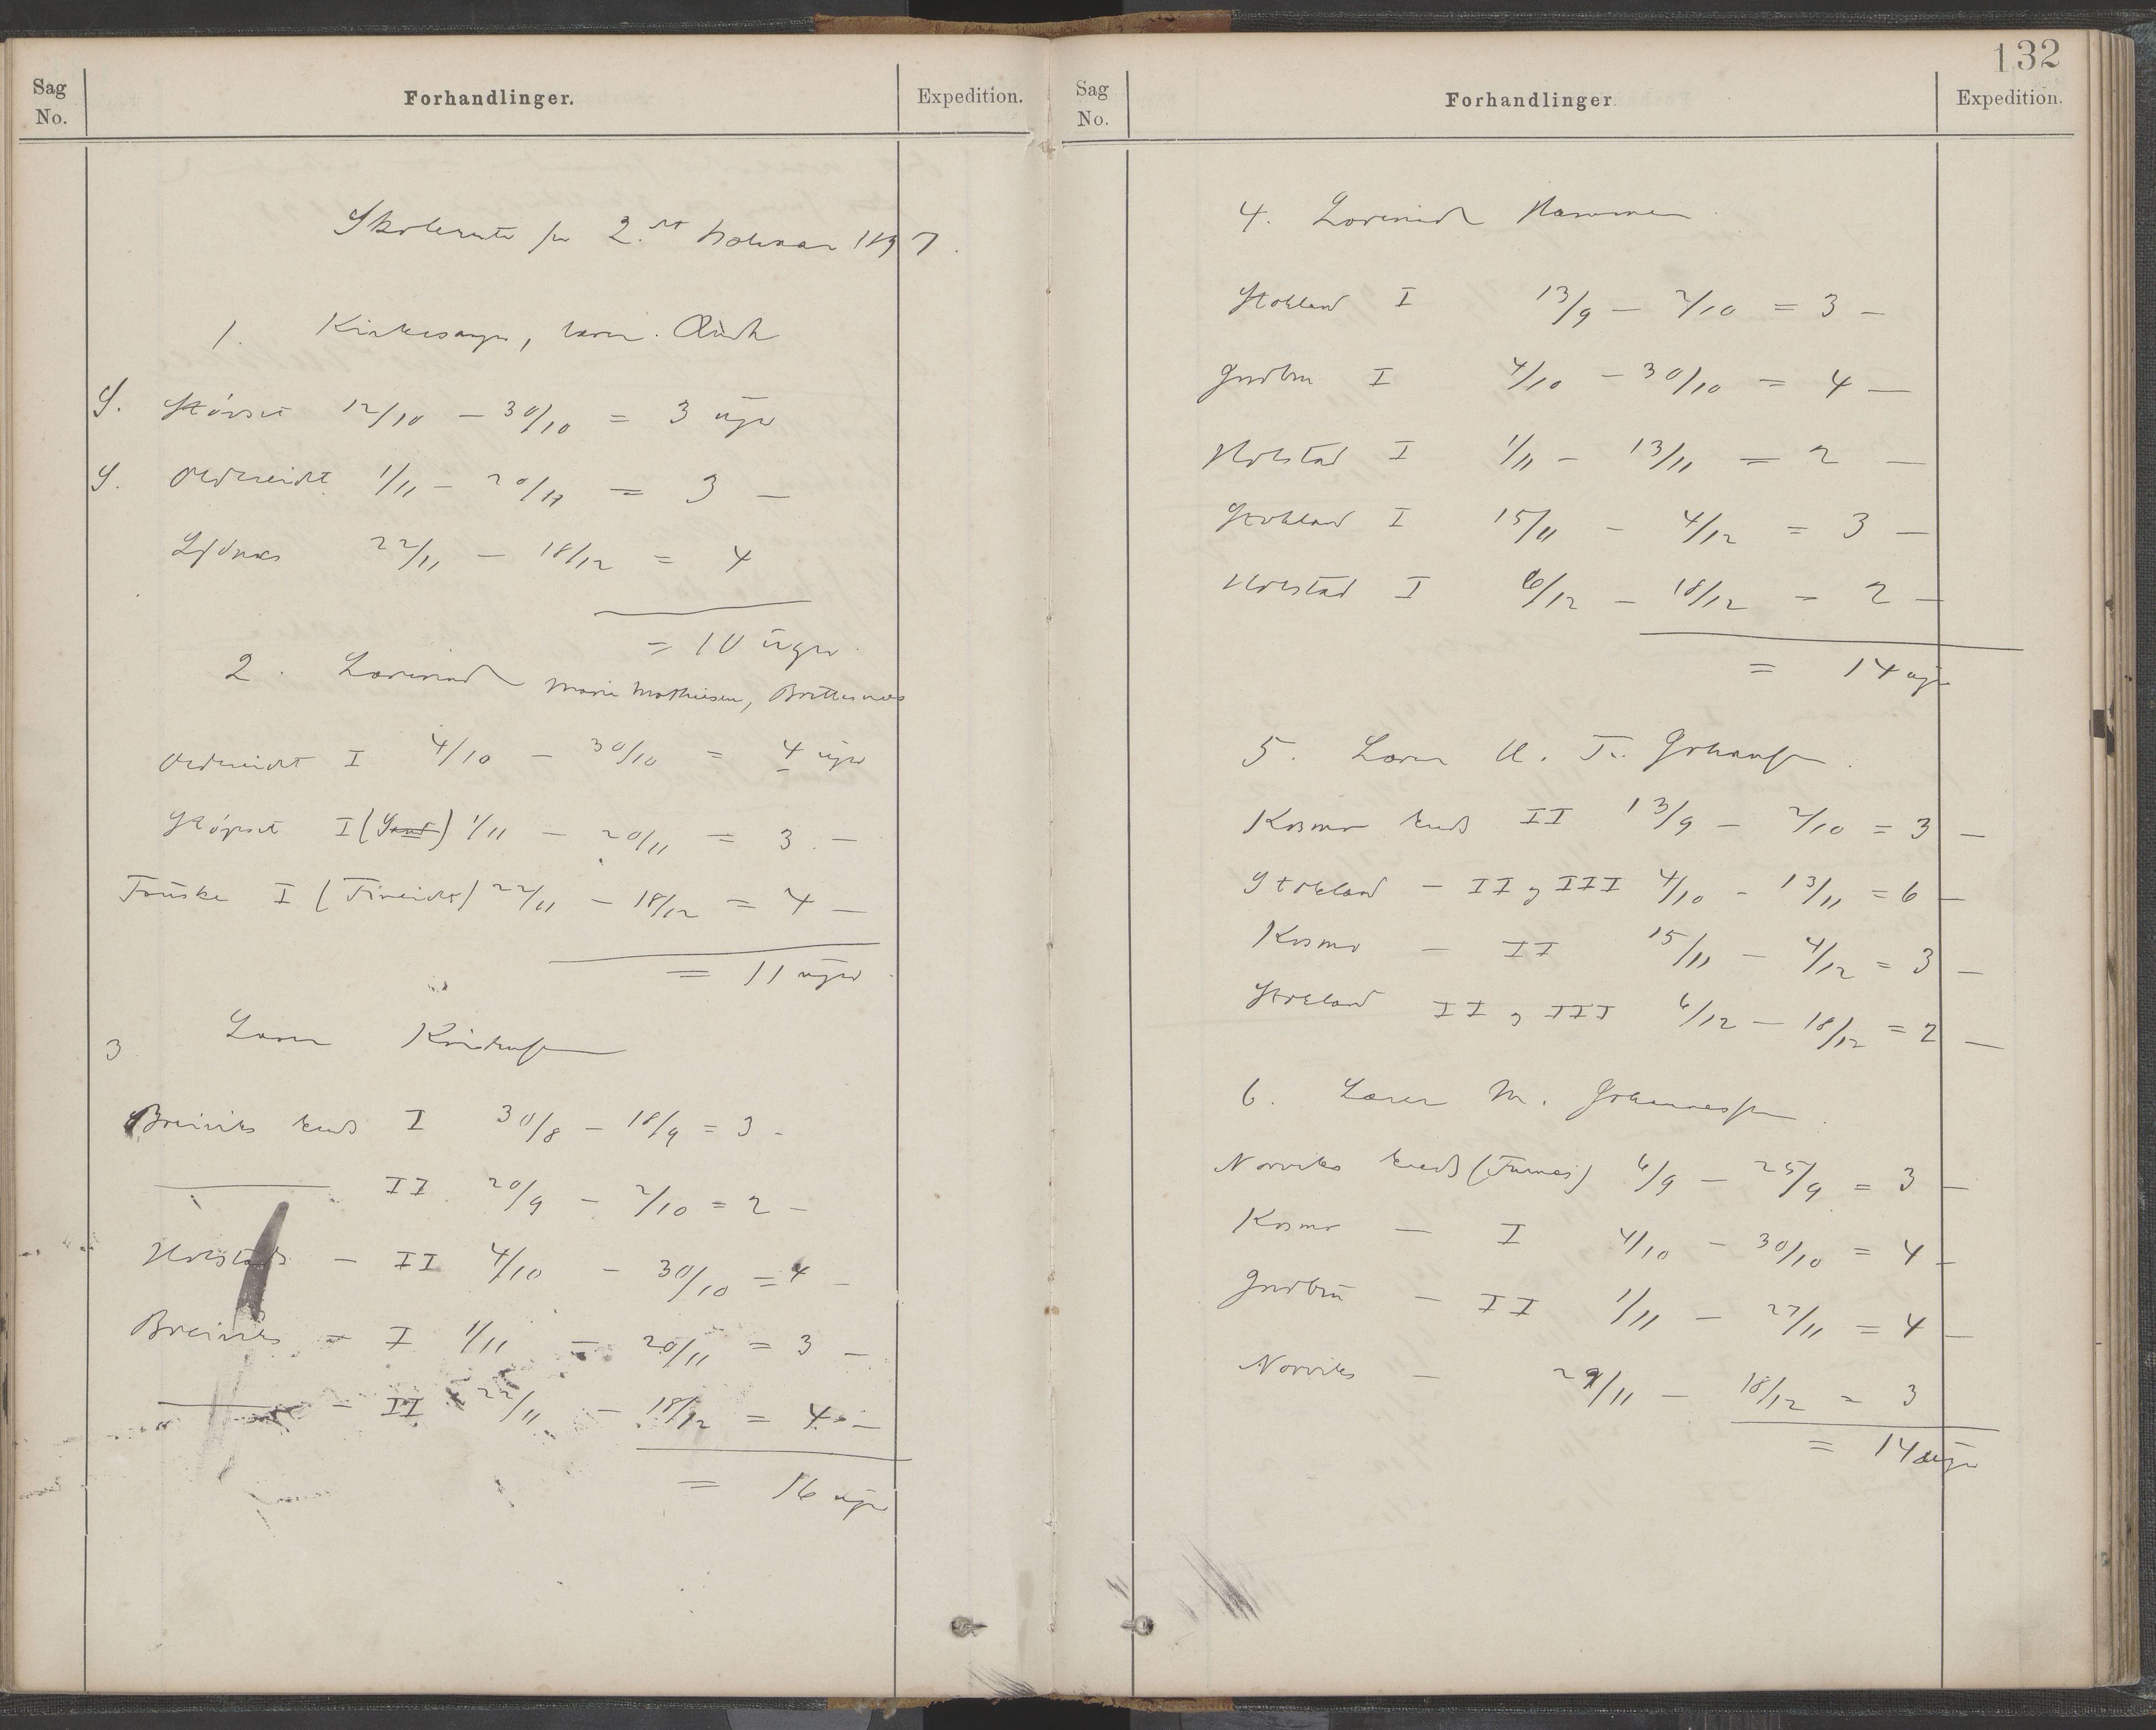 Sag No.
Forhandlinger.
Expedition.
Skolerute for 2.det halvaar 1897.
1. Kirkesanger, lærer
S. Støvset 12/10 - 30/10 = 3 uger
S. Oldereidet 1/11 - 20/11 = 3 —
Lifjønæs 22/11 - 18/12 = 4
= 10 uger
2. Lærerinde Marie Mathiesen, Brettesnæs
Oldereidet I 4/10 - 30/10 = 4 uger
Støvset I (Sand) 1/11 - 20/11 = 3 —
Fauske I (Fineidet) 22/11 - 18/12 = 4 —
= 11 uger
3 Lærer Kristensen
Breiviks kreds I 30/8 - 18/9 = 3 -
——— II 20/9 - 2/10 = 2 -
Holstads - II 4/10 - 30/10 = 4 -
Breiviks - I 1/11 - 20/11 = 3 -
——— - II 22/11 - 18/12 = 4 -
= 16 uger
132
Sag No.
Forhandlinger
Expedition.
4. Lærerinde Hammer
Stokland I 13/9 - 2/10 = 3 -
Godbu I 4/10 - 30/10 = 4 —
Holstad I 1/11 - 13/11 = 2 —
Stokland I 15/11 - 4/12 = 3 —
Holstad I 6/12 - 18/12 = 2 —
= 14 uger
5. Lærer A. Johansen.
Kosmo kreds II 13/9 - 2/10 = 3 —
Stokland - II og III 4/10 - 13/11 = 6 —
Kosmo - II 15/11 - 4/12 = 3 —
Stokland II og III 6/12 - 18/12 = 2 —
6. Lærer M. Johannessen.
Norviks kreds (Furnes) 6/9 - 25/9 = 3 —
Kosmo - I 4/10 - 30/10 = 4 -
Godbu - II 1/11 - 27/11 = 4 —
Norviks - 29/11 - 18/12 = 3
= 14 uger